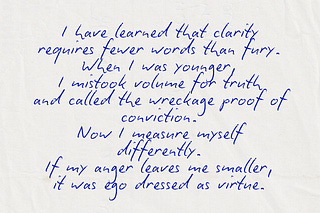 I have learned that clarity
requires fewer words than fury.
When I was younger,
I mistook volume for truth
and called the wreckage proof of
conviction.
Now I measure myself
differently.
If my anger leaves me smaller,
it was ego dressed as virtue.